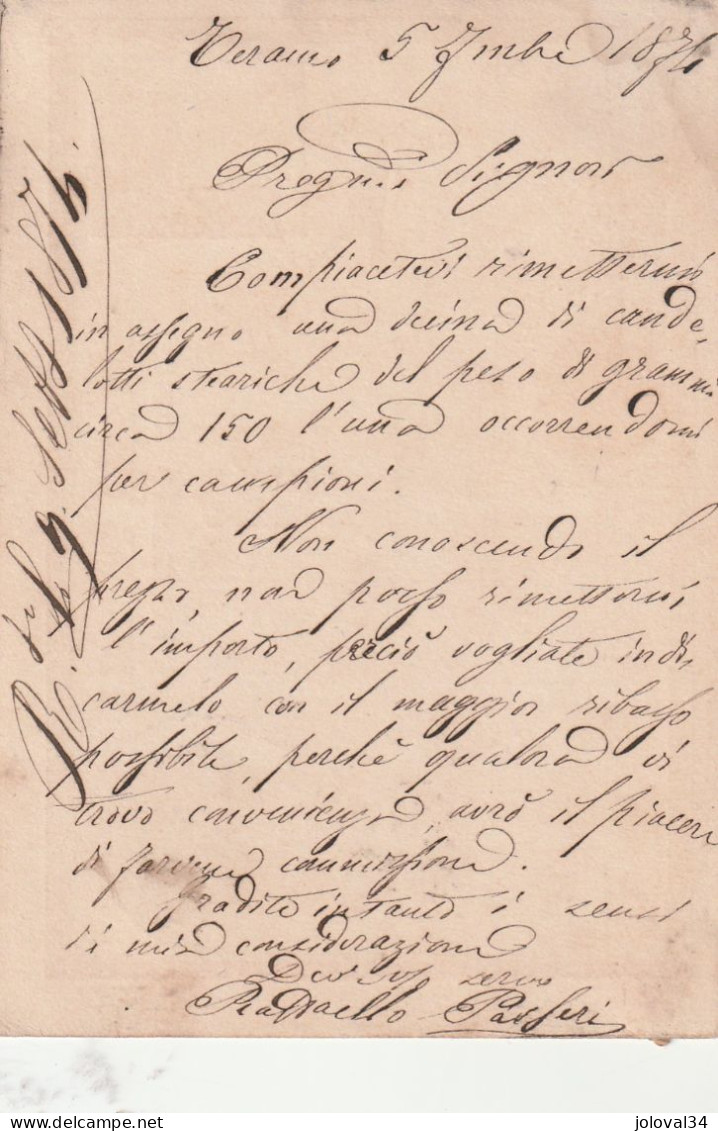 Teramo 5 7mbre 1874
Pregmo Signore
Compiacetevi rimettermi
in assegno una decina di cande,
lotti steariche del peso di grammi
circa 150 l'una occorrendomi
per campioni.
Non conoscendo il
prezzo, non posso rimettervi
l'importo, perciò vogliate indi,
carmelo con il maggior ribasso
possibile, perchè qualora vi
trovo convenienza, avrò il piacere
di farvene commissione.
Gradite intanto i sensi
di mia considerazione
Dev servo
Raffaello Passeri
9. Sett 1874.
joloval34